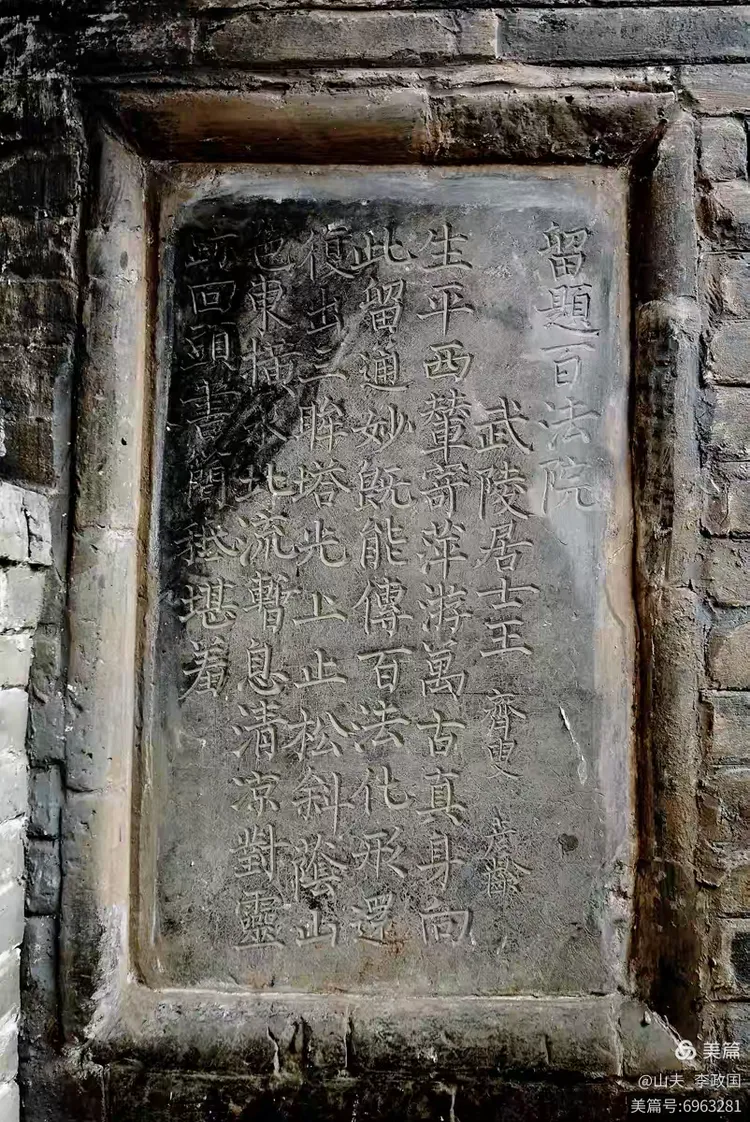 留題百法院
武陵居士王 齊叟 彦齡
生平西輦寄萍游萬古真身向
此留通妙既能傳百法化形還
復出三眸塔光上止松斜蔭山
色東橫水北流暫息清凉對靈
跡回頭書簡秪堪羞
美篇
@山夫 李政国
美篇号:6963281